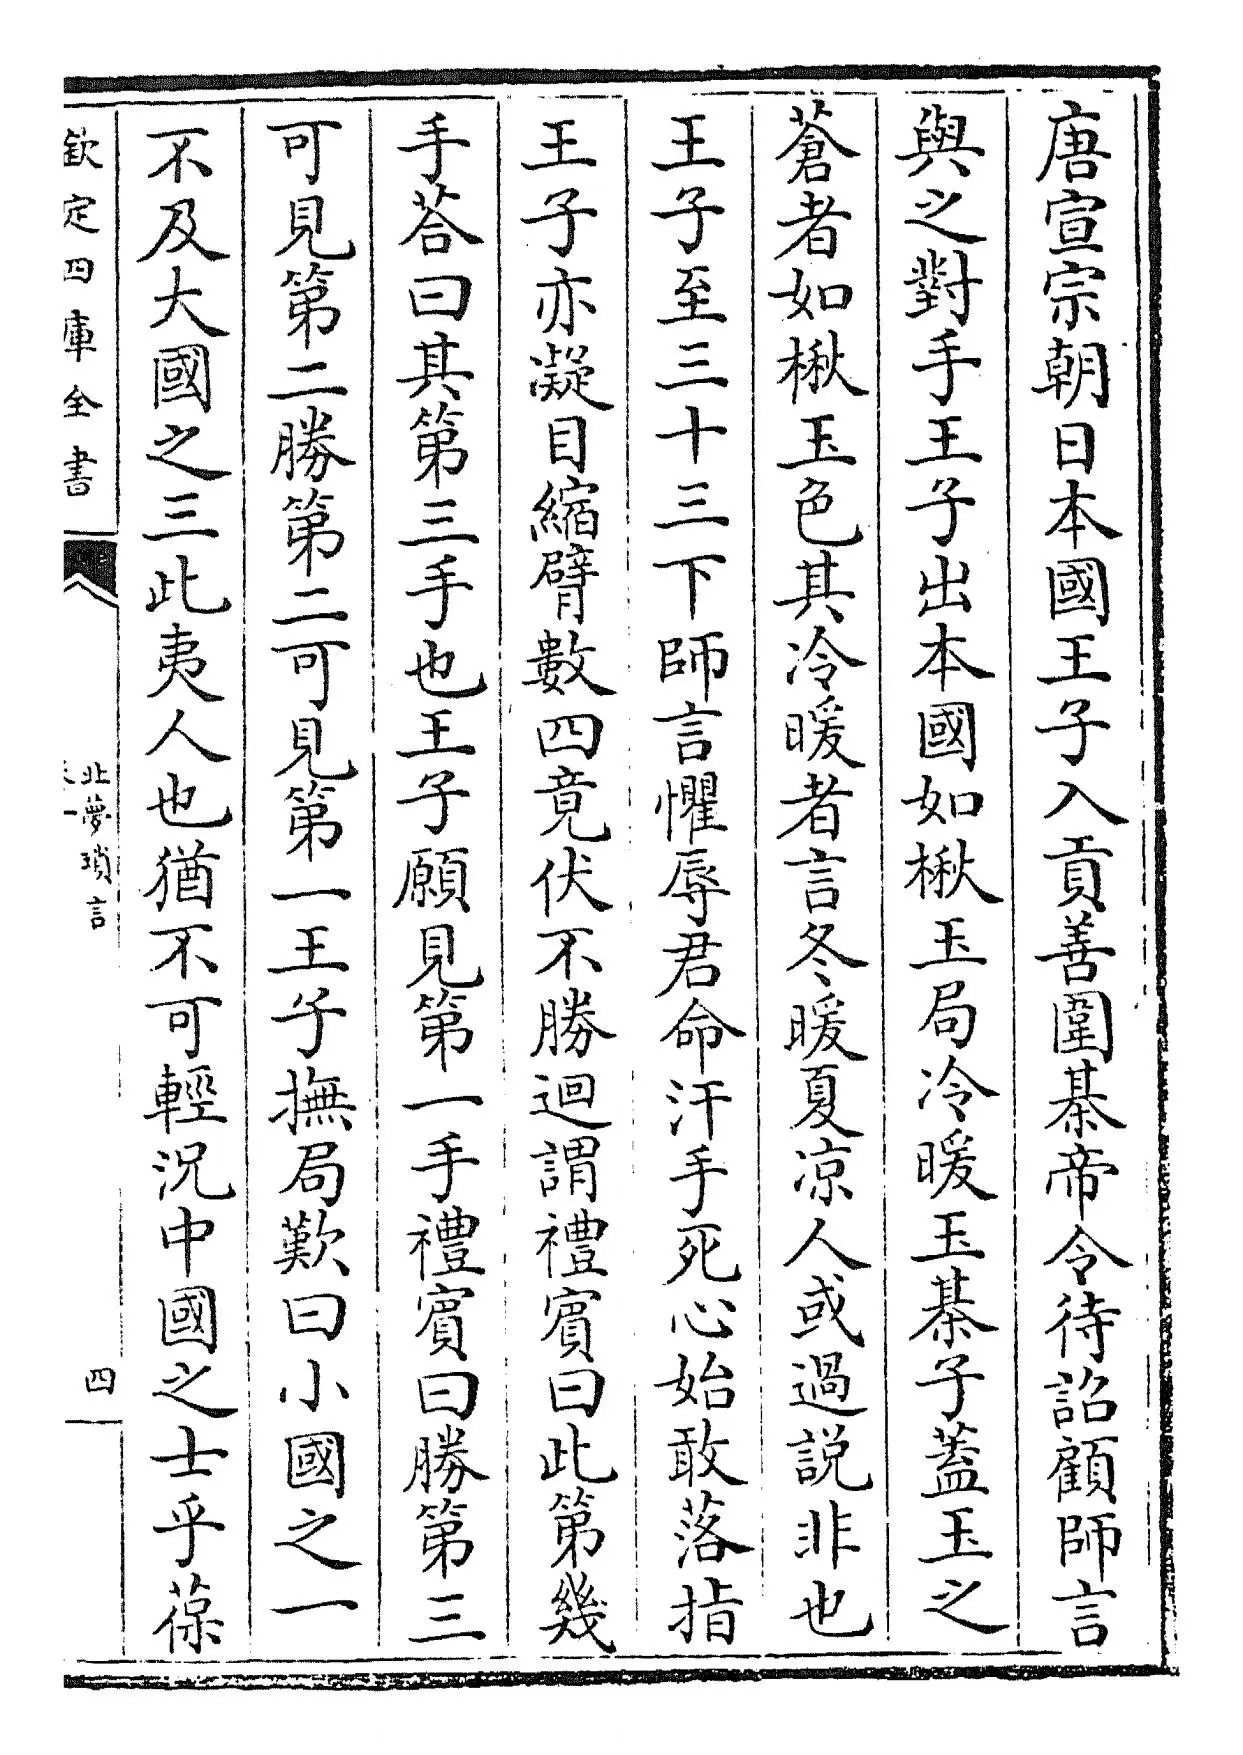 唐宣宗朝日本國王子入貢善圍棊帝令待詔顧師言
與之對手王子出本國如楸玉局冷暖玉棊子蓋玉之
蒼者如楸玉色其冷暖者言冬暖夏凉人或過說非也
王子至三十三下師言懼辱君命汗手死心始敢落指
王子亦凝目縮臂數四竟伏不勝迴謂禮賓曰此第幾
手荅曰其第三手也王子願見第一手禮賓曰勝第三
可見第二勝第二可見第一王子撫局歎曰小國之一
不及大國之三此夷人也猶不可輕況中國之士乎葆
欽定四庫全書
北夢瑣言
四